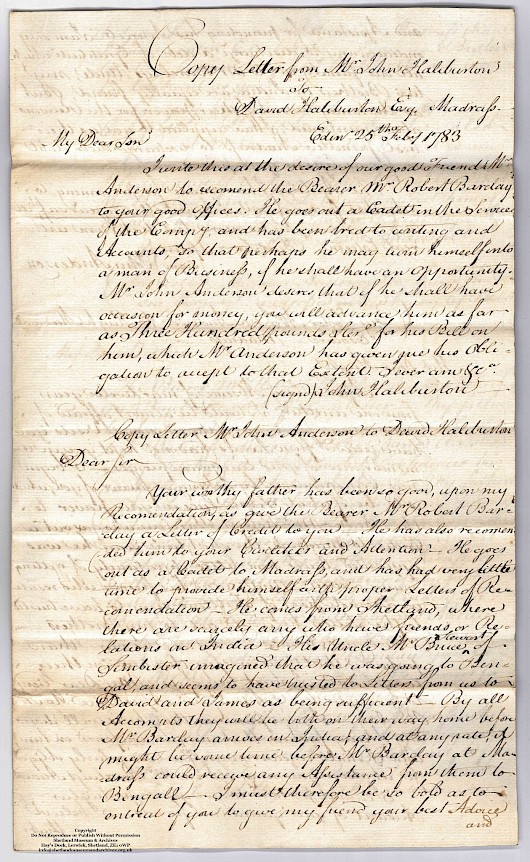 Copy Letter from Mr. John Haliburton
To
David Haliburton Esq. Madrass
Edinr 25th Feby 1783
My Dear Son
I write this at the desire of our good Friend Mr.
Anderson to recomend the Bearer Mr. Robert Barclay
to your good offices. He goes out a Cadet in the Service
of the Compy and has been bred to writing and
Accounts, so that perhaps he may turn himself into
a man of Bussiness, if he shall have an opportunity.
Mr. John Anderson desires that if he shall have
occasion for money, you will advance him as far
as Three Hundred pounds sterg. for his Bill on
him, which Mr. Anderson has given me his Obli-
gation to accept to that Extent I ever am &ca.
(signd) John Haliburton
Copy Letter Mr. John Anderson to David Haliburton
Dear Sir
Your worthy father has been so good, upon my
Recomendation, as give the Bearer Mr. Robert Bar-
clay a Letter of Credit to you He has also recomen-
ded him to your Civilities and Attention - He goes
out as a Cadet to Madrass, and has had very little
time to provide himself with proper Letters of Re-
comendation - He comes from Shetland, where
there are scarcely any who have friends, or Re-
lations in India - His Uncle Mr. Bruce Stewart of
Simbister imagined that he was going to Ben-
gal, and seems to have trusted to Letters from us to
David and James as being sufficient - By all
Accompts they will be both on their way home before
Mr. Barclay arrives in India, and at any rate, it
might be some time before Mr. Barclay at Ma-
drass could receive any Assistance from them to
Bengall - I must therefore be so bold as to
entreat of you to give my friend your best Advice
and
Copyright
Do Not Reproduce or Publish Without Permission
Shetland Museum & Archives
Hay's Dock, Lerwick, Shetland, ZE1 0WP
info@shetlandmuseumandarchives.org.uk